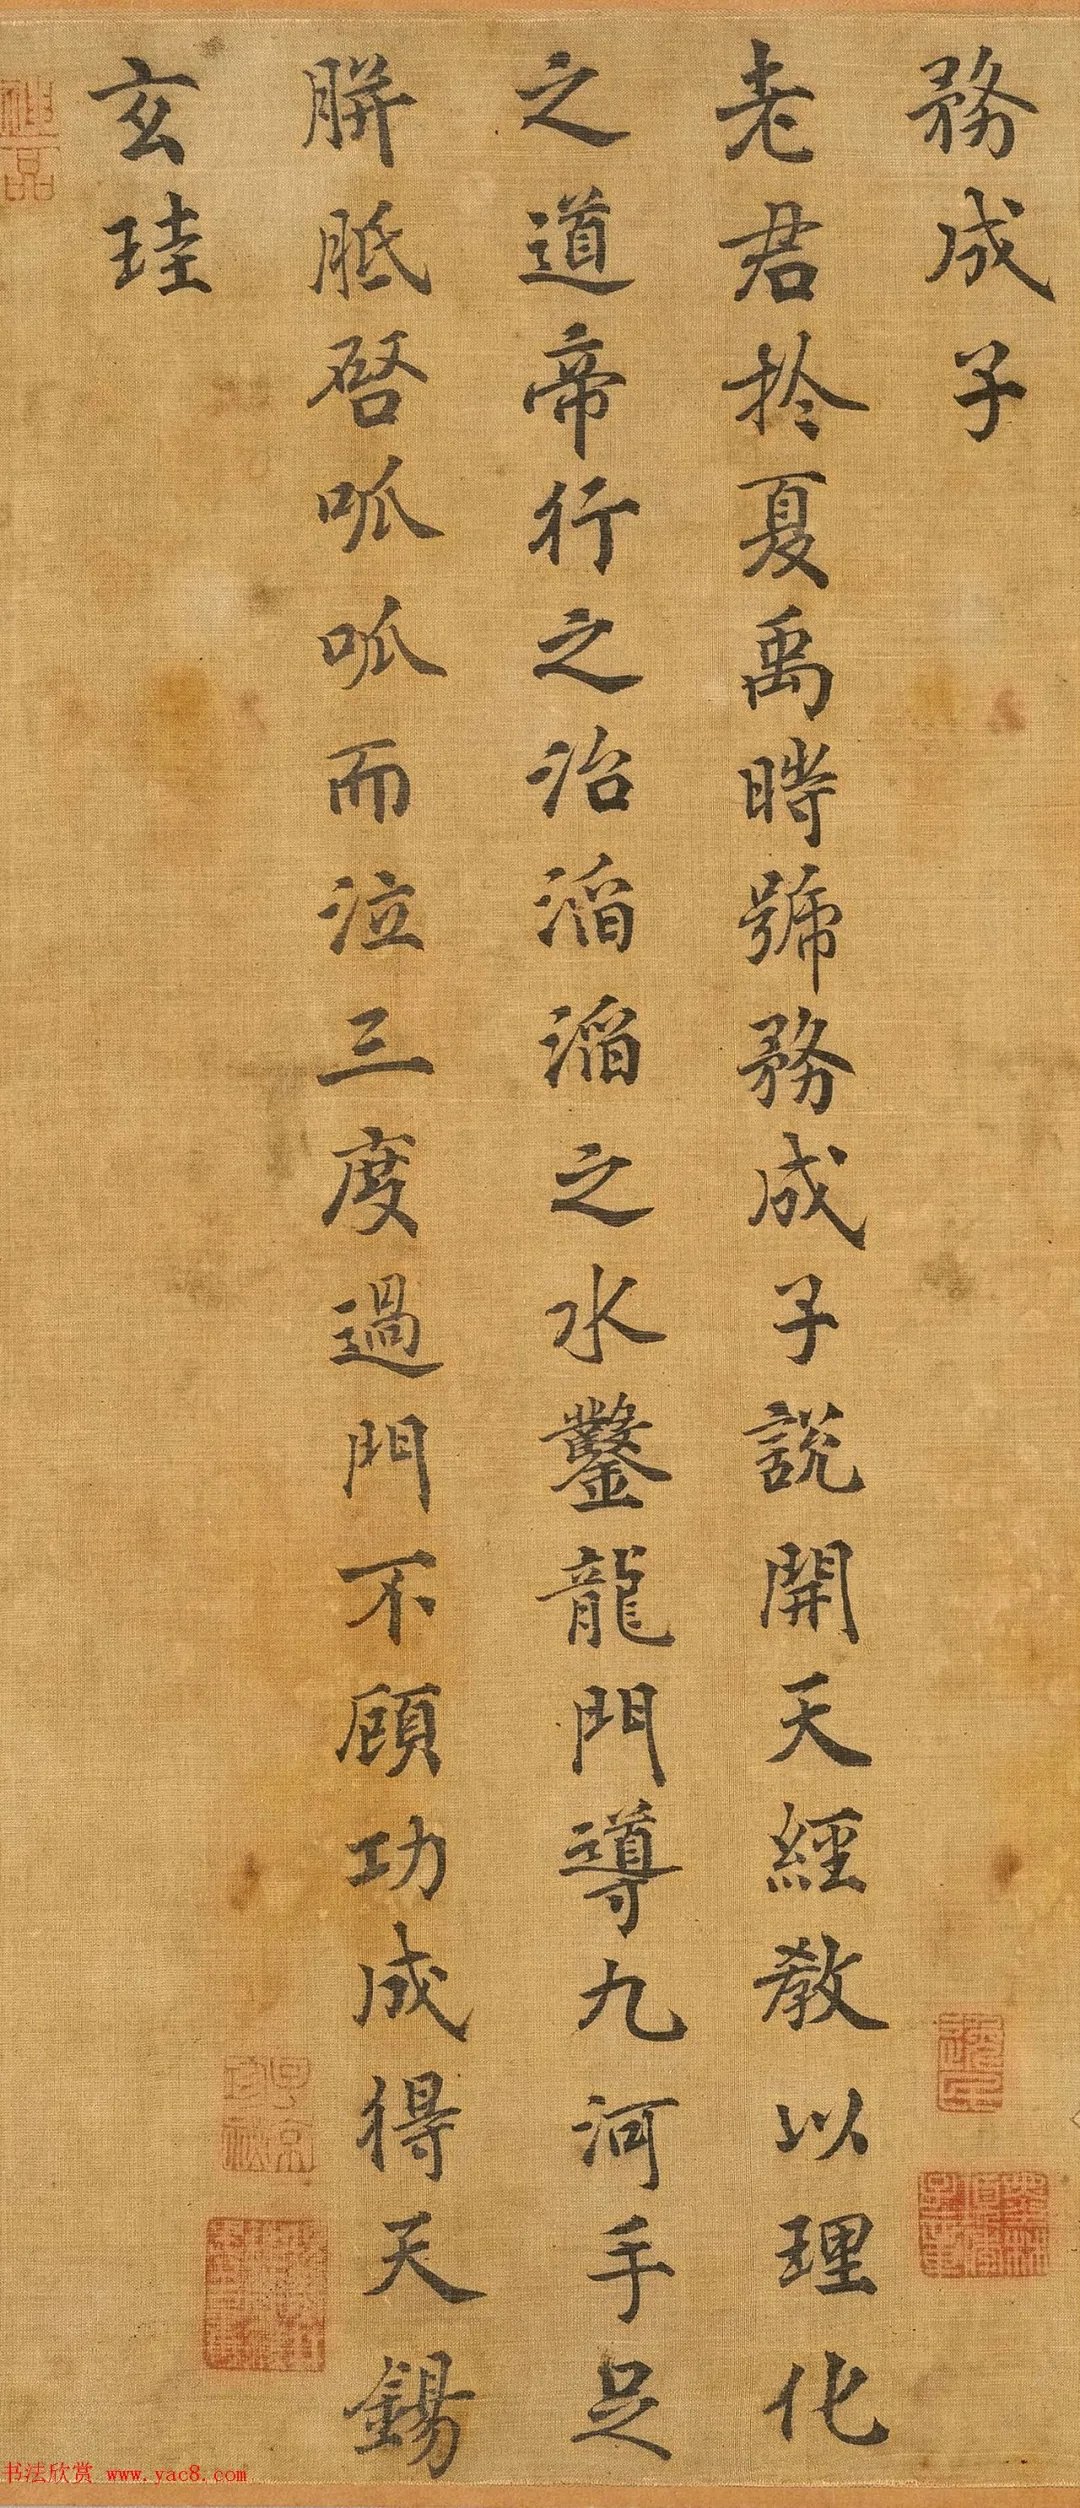 務成子
老君於夏禹時號務成子說開天經教以理化
之道帝行之治滔滔之水鑿龍門導九河手足
胼胝啓呱呱而泣三度過門不顧功成得天錫
玄珪
书法欣赏 www.yac8.com